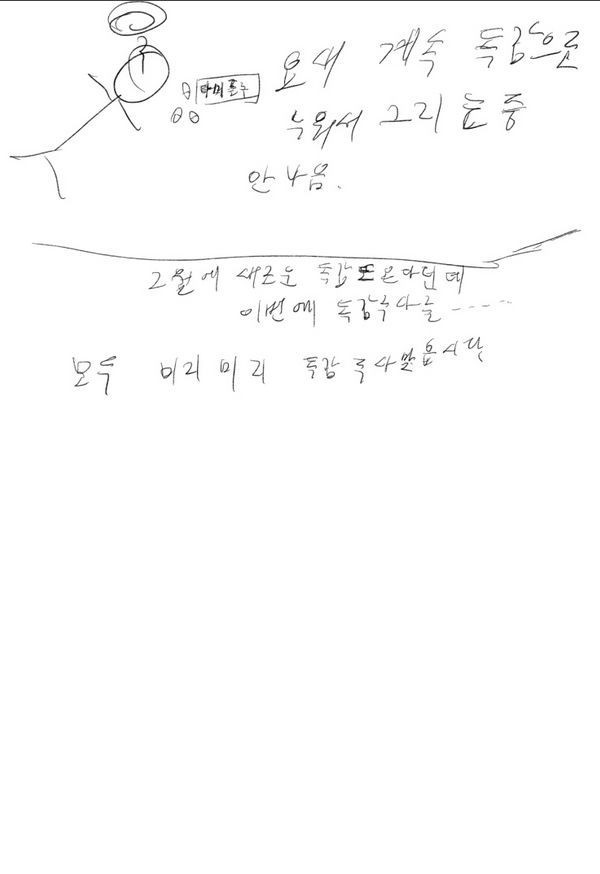 요새 계속 독감으로
타미플루
누워서 그리는 중
안 나음.
2월에 새로운 독감 또 온다던데
이번에 독감주사를 -----
모두 미리미리 독감 주사 맞읍시다